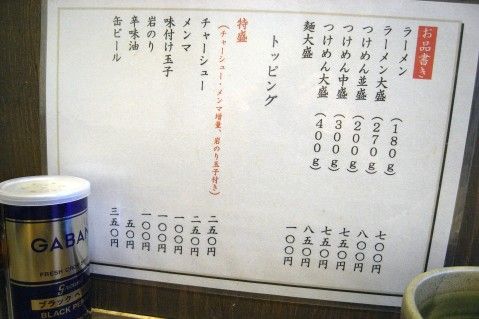 お品書き
ラーメン (180g) 七〇〇円
ラーメン大盛 (270g) 八〇〇円
つけめん並盛 (200g) 七五〇円
つけめん中盛 (300g) 七五〇円
つけめん大盛 (400g) 八五〇円
麺大盛 一〇〇円
トッピング
特盛 (チャーシュー・メンマ増量、岩のり玉子付き) 二五〇円
チャーシュー 二五〇円
メンマ 一〇〇円
味付け玉子 一〇〇円
岩のり 一〇〇円
辛味油 五〇円
缶ビール 三五〇円
GABAN
FRESH
ブラック
BLACK